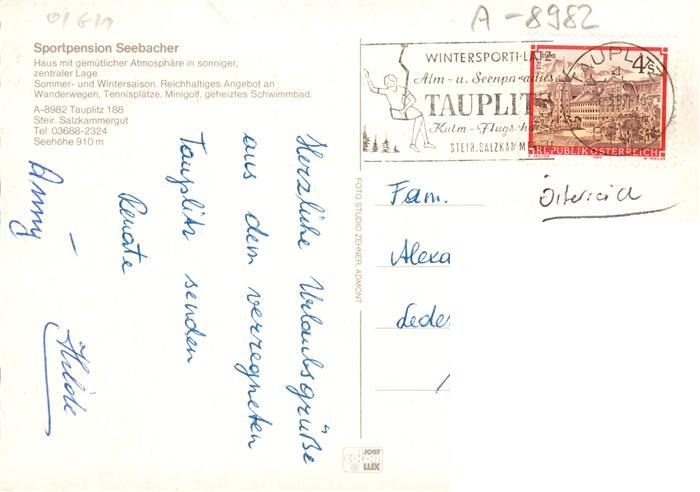 A-8982
Sportpension Seebacher
Haus mit gemütlicher Atmosphäre in sonniger,
zentraler Lage.
Sommer- und Wintersaison. Reichhaltiges Angebot an
Wanderwegen, Tennisplätze, Minigolf, geheiztes Schwimmbad.
A-8982 Tauplitz 188
Steir. Salzkammergut
Tel. 03688-2324
Seehöhe 910 m
Herzliche Urlaubsgrüße
aus dem verregneten
Tauplitz senden
Renate
Anny – Hilde
FOTO STUDIO ZEHNER, ADMONT
JOST
COLOR
LUX
WINTERSPORT
Alm- u. Seenparadies
TAUPLITZ
Kulm-Flugs
STEIR. SALZKAMM
TAUPL
REPUBLIK ÖSTERREICH
Fam.
Alexa
Lede